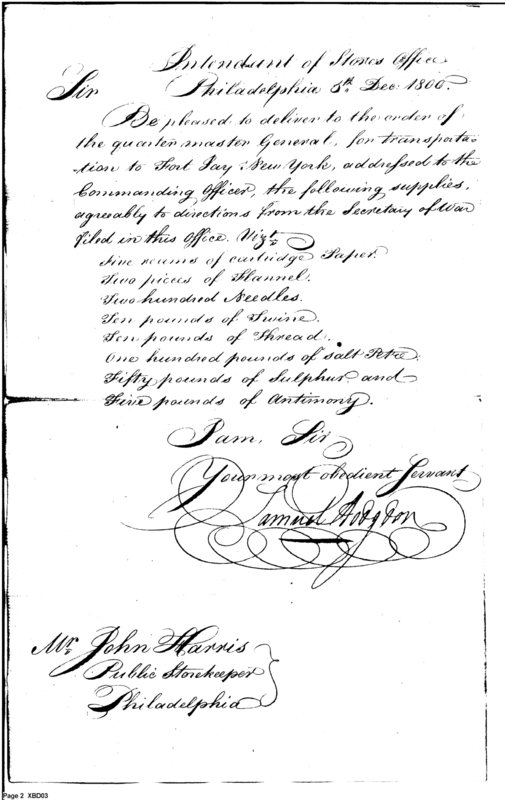 Intendant of Stores Office
Philadelphia 5th. Dec. 1800.
Sir
Be pleased to deliver to the order of
the quartermaster General, for transporta=
tion to Fort Jay, New York, addressed to the
Commanding Officer, the following supplies,
agreably to directions from the Secretary of War
filed in this Office. Vizt.
Five reams of cartridge Paper.
Two pieces of Flannel.
Two hundred Needles.
Ten pounds of Twine.
Ten pounds of Thread.
One hundred pounds of salt Petre.
Fifty pounds of Sulphur and
Five pounds of Antimony.
I am, Sir
Your most obedient Servant
Samuel Hodgdon
Mr. John Harris
Public Storekeeper
Philadelphia
Page 2 XBD03